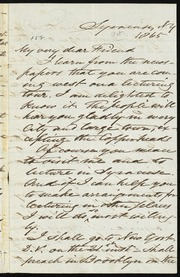 Syracuse, N.Y.
1865
My very dear Friend
I learn from the news-
papers that you are com-
ing west on a lecturing
tour. I am delighted to
know it. The people will
hear you gladly in every
City and large town,
the
Of course you mean to
visit me and to
lecture in Syracuse
And if I can help you
make arrangements for
lecturing in other places
I will do most willing-
ly.
I shall go to New York
on the I shall
preach in Brooklyn on the